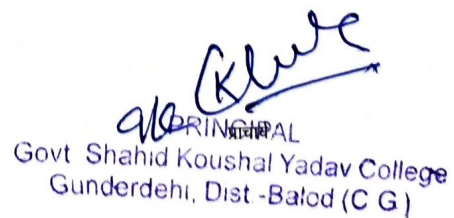 PRINCIPAL
Govt Shahid Koushal Yadav College
Gunderdehi, Dist.-Balod (C G)